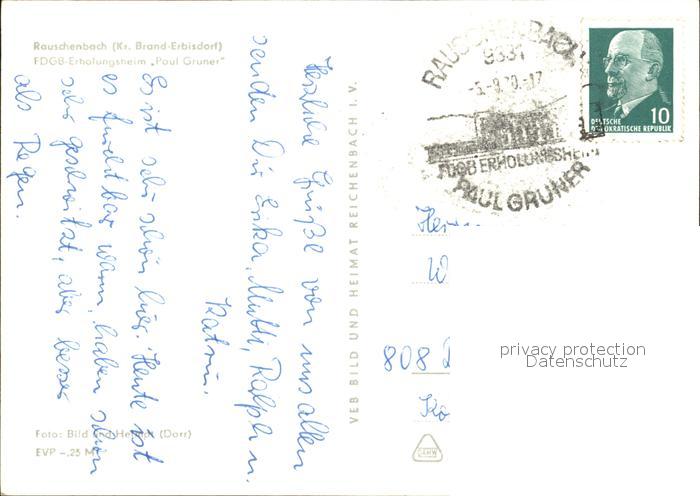 Rauschenbach (Kr. Brand-Erbisdorf)
FDGB-Erholungsheim „Paul Gruner"
Herzliche Grüße von uns allen
senden Dir Erika, Mutti, Ralph u.
Katrin.
Es ist sehr schön hier. Heute ist
es furchtbar warm, haben schon
sehr geschwitzt, aber besser
als Regen.
Foto: Bild und Heimat (Darr)
EVP -,25 M
VEB BILD UND HEIMAT REICHENBACH I. V.
RAUSCHENBACH
9331
-5.-9.70.-17
FDGB ERHOLUNGSHEIM
PAUL GRUNER
10
DEUTSCHE
DEMOKRATISCHE REPUBLIK
808
privacy protection
Datenschutz